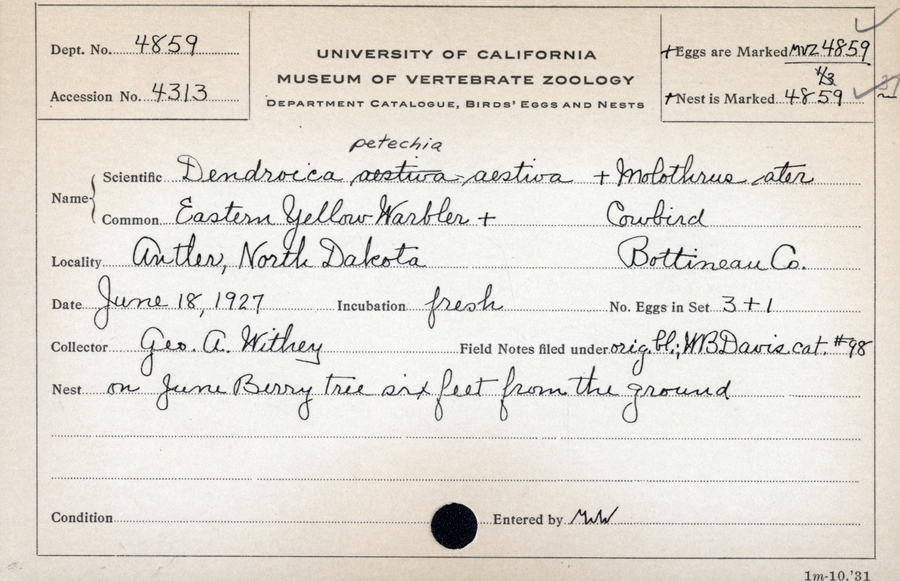 Dept. No. 4859
Accession No. 4313
UNIVERSITY OF CALIFORNIA
MUSEUM OF VERTEBRATE ZOOLOGY
DEPARTMENT CATALOGUE, BIRDS' EGGS AND NESTS
+Eggs are Marked MVZ 4859
4/3
+Nest is Marked 4859
petechia
Name Scientific Dendroica aestiva aestiva + Molothrus ater
Common Eastern Yellow Warbler + Cowbird
Locality Antler, North Dakota Bottineau Co.
Date June 18, 1927 Incubation fresh No. Eggs in Set 3+1
Collector Geo. A. Withey Field Notes filed under orig. bl.; WBDavis cat. #98
Nest on June Berry tree six feet from the ground
Condition Entered by
1m-10,'31